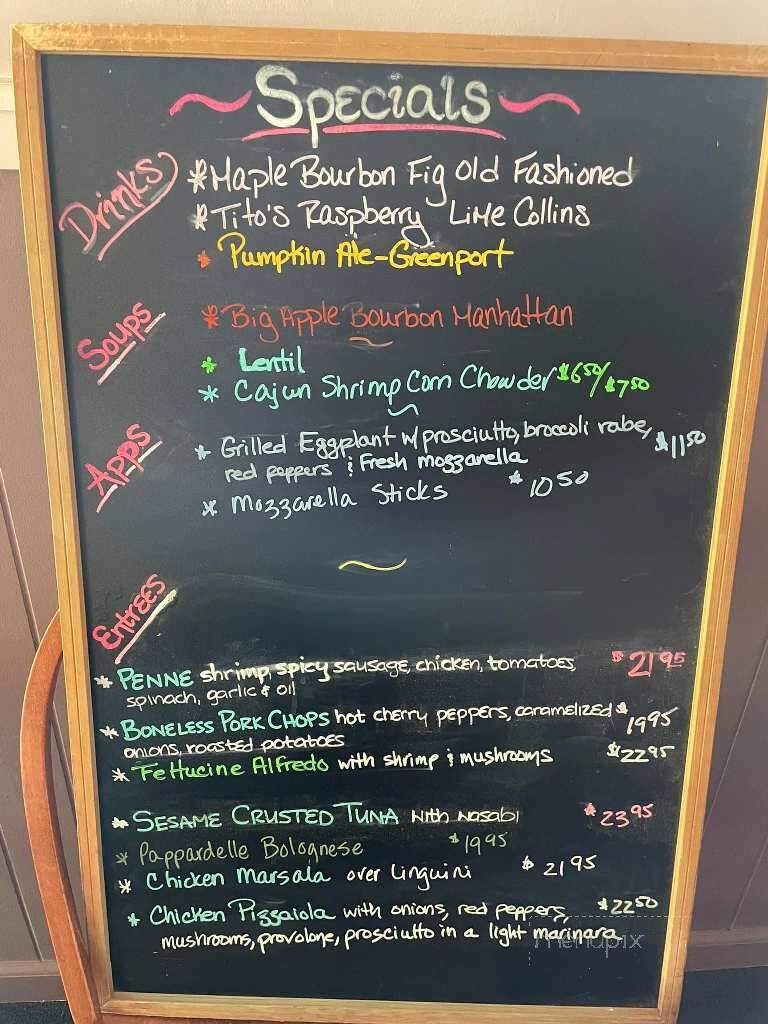 Specials
Drinks
* Maple Bourbon Fig Old Fashioned
* Tito's Raspberry Lime Collins
* Pumpkin Ale-Greenport
* Big Apple Bourbon Manhattan
Soups
* Lentil
* Cajun Shrimp Corn Chowder $6.50/$7.50
Apps
* Grilled Eggplant w/prosciutto, broccoli rabe, $11.50
red peppers & Fresh mozzarella
* Mozzarella Sticks $10.50
Entrées
* PENNE shrimp, spicy sausage, chicken, tomatoes, $21.95
spinach, garlic & oil
* BONELESS PORK CHOPS hot cherry peppers, caramelized $19.95
onions, roasted potatoes
* Fettucine Alfredo with shrimp & mushrooms $22.95
* SESAME CRUSTED TUNA with wasabi $23.95
* Pappardelle Bolognese $19.95
* Chicken Marsala over linguini $21.95
* Chicken Pizzaiola with onions, red peppers, $22.50
mushrooms, provolone, prosciutto in a light marinara
menupix